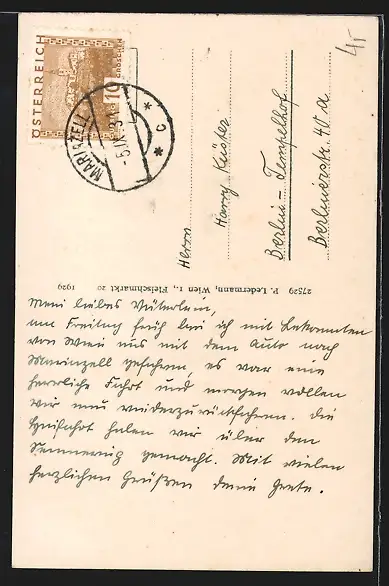 ÖSTERREICH
10
GROSCHEN
MARIAZELL
* C *
Herrn
Harry Küster
Berlin – Tempelhof
Berlinerstr. 41 a
27529 P. Ledermann, Wien I., Fleischmarkt 20 1929
Mein liebes Brüderlein,
am Freitag früh bin ich mit Bekannten
von Wien aus mit dem Auto nach
Mariazell gefahren, es war eine
herrliche Fahrt und morgen wollen
wir nun wieder zurückfahren. Die
Hinfahrt haben wir über den
Semmering gemacht. Mit vielen
herzlichen Grüßen deine Grete.